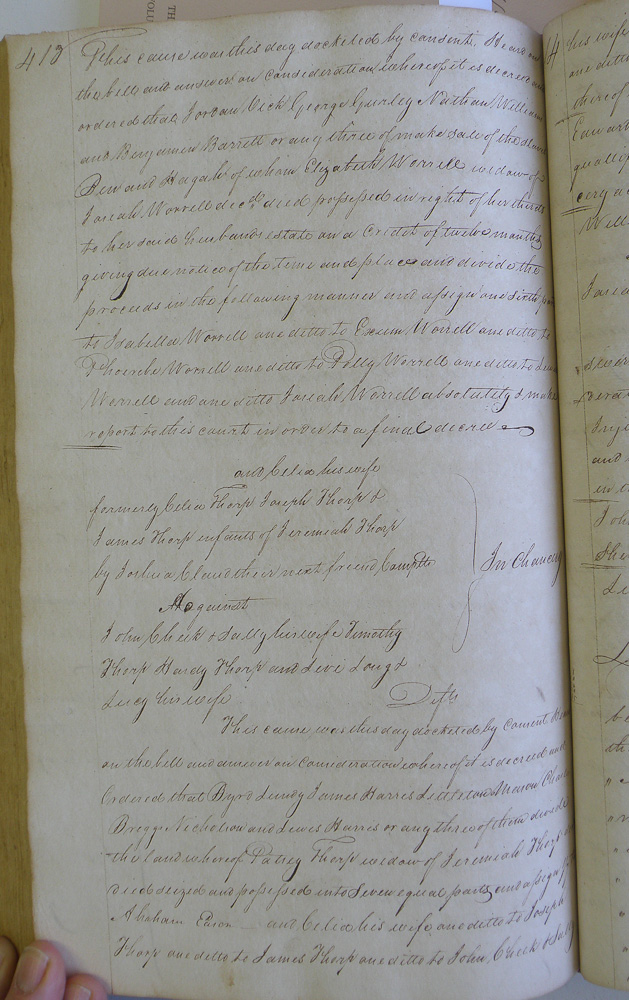 413
This cause was this day docketed by consent. Heard on
the bill and answer on consideration whereof it is decreed and
ordered that Jordan Vick George Gurley Nathan William
and Benjamin Barrett or any three of make sale of the slaves
Ben and Hagah of whom Elizabeth Worrell widow of
Josiah Worrell decd. died possessed in right of her thirds
to her said husbands estate on a Credit of twelve months,
giving due notice of the time and place and divide the
proceeds in the following manner and assign one sixth
to Isabella Worrell one ditto to Exum Worrell one ditto to
Phoerebe Worrell one ditto to Polly Worrell one ditto to
Worrell and one ditto Josiah Worrell absolutely & make
report to this court in order to a final decree
and Celia his wife
formerly Celia Thorp Joseph Thorp &
James Thorp infants of Jeremiah Thorp
by Joshua Claud their next friend Complts
In Chancery
Against
John Cheek & Sally his wife Timothy
Thorp Hardy Thorp and Levi Long &
Lucy his wife
Defts
This cause was this day docketed by consent Heard
on the bill and answer on consideration whereof it is decreed and
Ordered that Byrd Lundy James Harris Littleton Mason
Bregge Nicholson and Lewis Harris or any three of them divide
the land whereof Patsey Thorp widow of Jeremiah Thorp
died seized and possessed into Seven equal parts and assign
Abraham Eason and Celia his wife one ditto to Joseph
Thorp one ditto to James Thorp one ditto to John Cheek & Sally
his wife
one ditto
thereof
Edward
Well
and
John